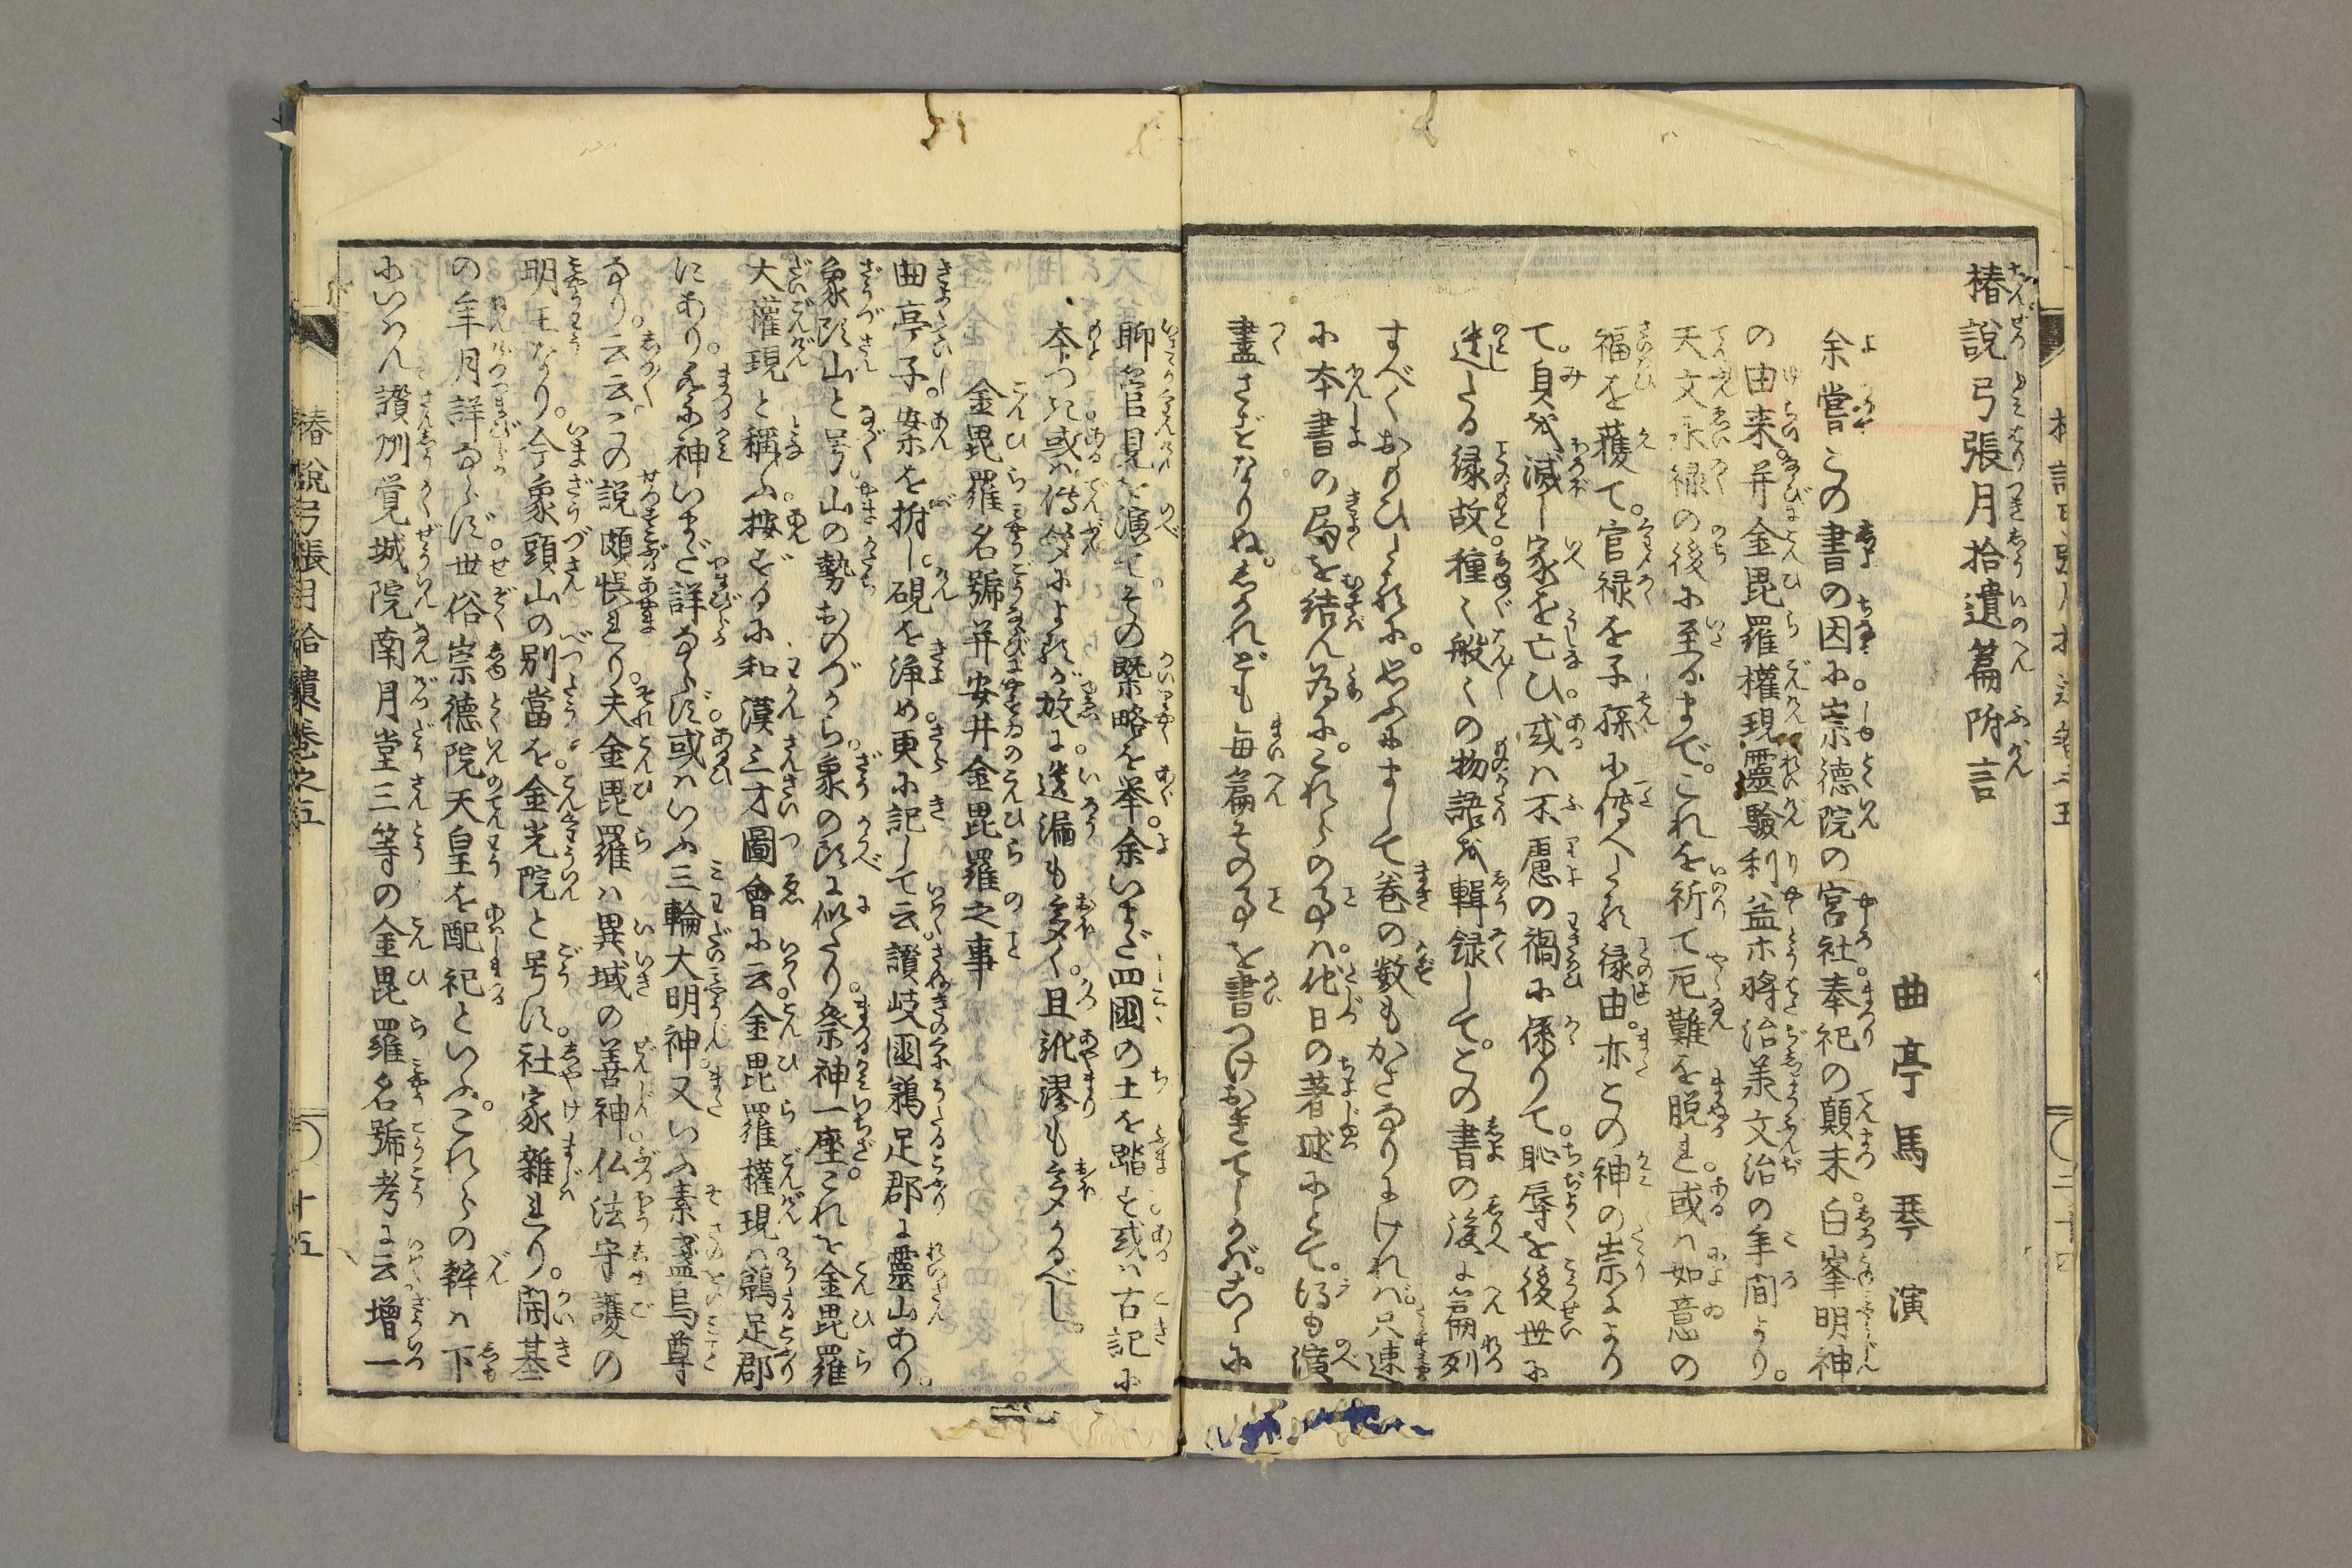 椿說弓張月拾遺篇附言
曲亭馬琴演
余嘗この書の因に崇徳院の宮社奉祀の顛末。白峯明神
の由来。并金毘羅權現靈驗利益ホ將治美文治の年間より。
天文永禄の後に至るまで。これを祈て厄難を脱れ或は如意の
福を獲て。官禄を子孫に傳へたる縁由。亦この神の祟により
て。身を滅し家を亡ひ。或は不慮の禍に係りて。恥辱を後世に
遺したる縁故。種々般々の物語を輯録して。この書の後に篇列
すべくおもひしかど。思ふにまして巻の数もかさなりにければ。只速
に本書の局を結ん為に。これらの事は他日の著述にとて。得も演
盡さずとなりぬ。しかれども毎篇その事を書つけおきてしかば。こゝに
聊管見を演てその槩略を挙。余いまだ四國の土を踏ず或は古記に
本つき或は傳聞によるが故に。遺漏も多く。且訛漻も多かるべし。
金毘羅名號并安井金毘羅之事
曲亭子。案を拊し。硯を浄め更に記して云。讃岐國鵜足郡に靈山あり。
象頭山と号。山の勢おのづから。象の頭に似たり。祭神一座。これを金毘羅
大權現と稱ふ。按ずるに和漢三才圖會に云。金毘羅權現は鵜足郡
にあり。祭神いまだ詳ならず。或はいふ三輪大明神。又いふ素盞烏尊
なり。云云。この説頗悞れり。夫金毘羅は異域の善神。仏法守護の
明王なり。今象頭山の別當を。金光院と号す。社家雑れり。開基
の年月詳ならず。世俗崇徳院天皇を配祀といふ。これらの辨は下
にいはん。讃州覚城院南月堂三等の金毘羅名號考に云増一
椿說弓張月拾遺巻之五
十五